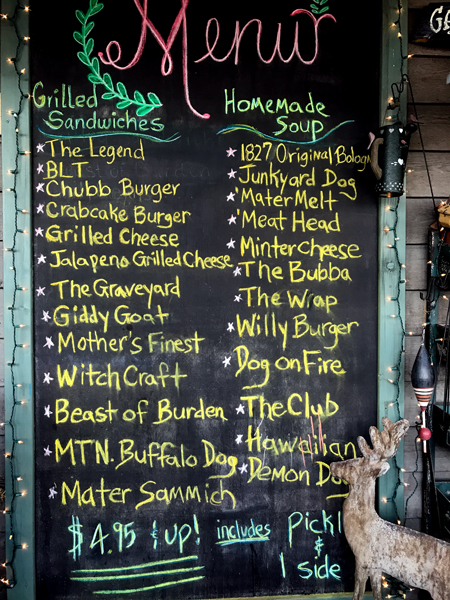 Menu
Grilled
Sandwiches
The Legend
BLT
Chubb Burger
Crabcake Burger
Grilled Cheese
Jalapeno Grilled Cheese
The Graveyard
Giddy Goat
Mother's Finest
Witch Craft
Beast of Burden
MTN. Buffalo Dog
Mater Sammich
Homemade
Soup
1827 Original Bologn
Junkyard Dog
'Mater Melt
'Meat Head
Minter Cheese
The Bubba
The Wrap
Willy Burger
Dog on Fire
The Club
Hawaiian
Demon Dog
$4.95 & up! includes Pickl
&
1 side